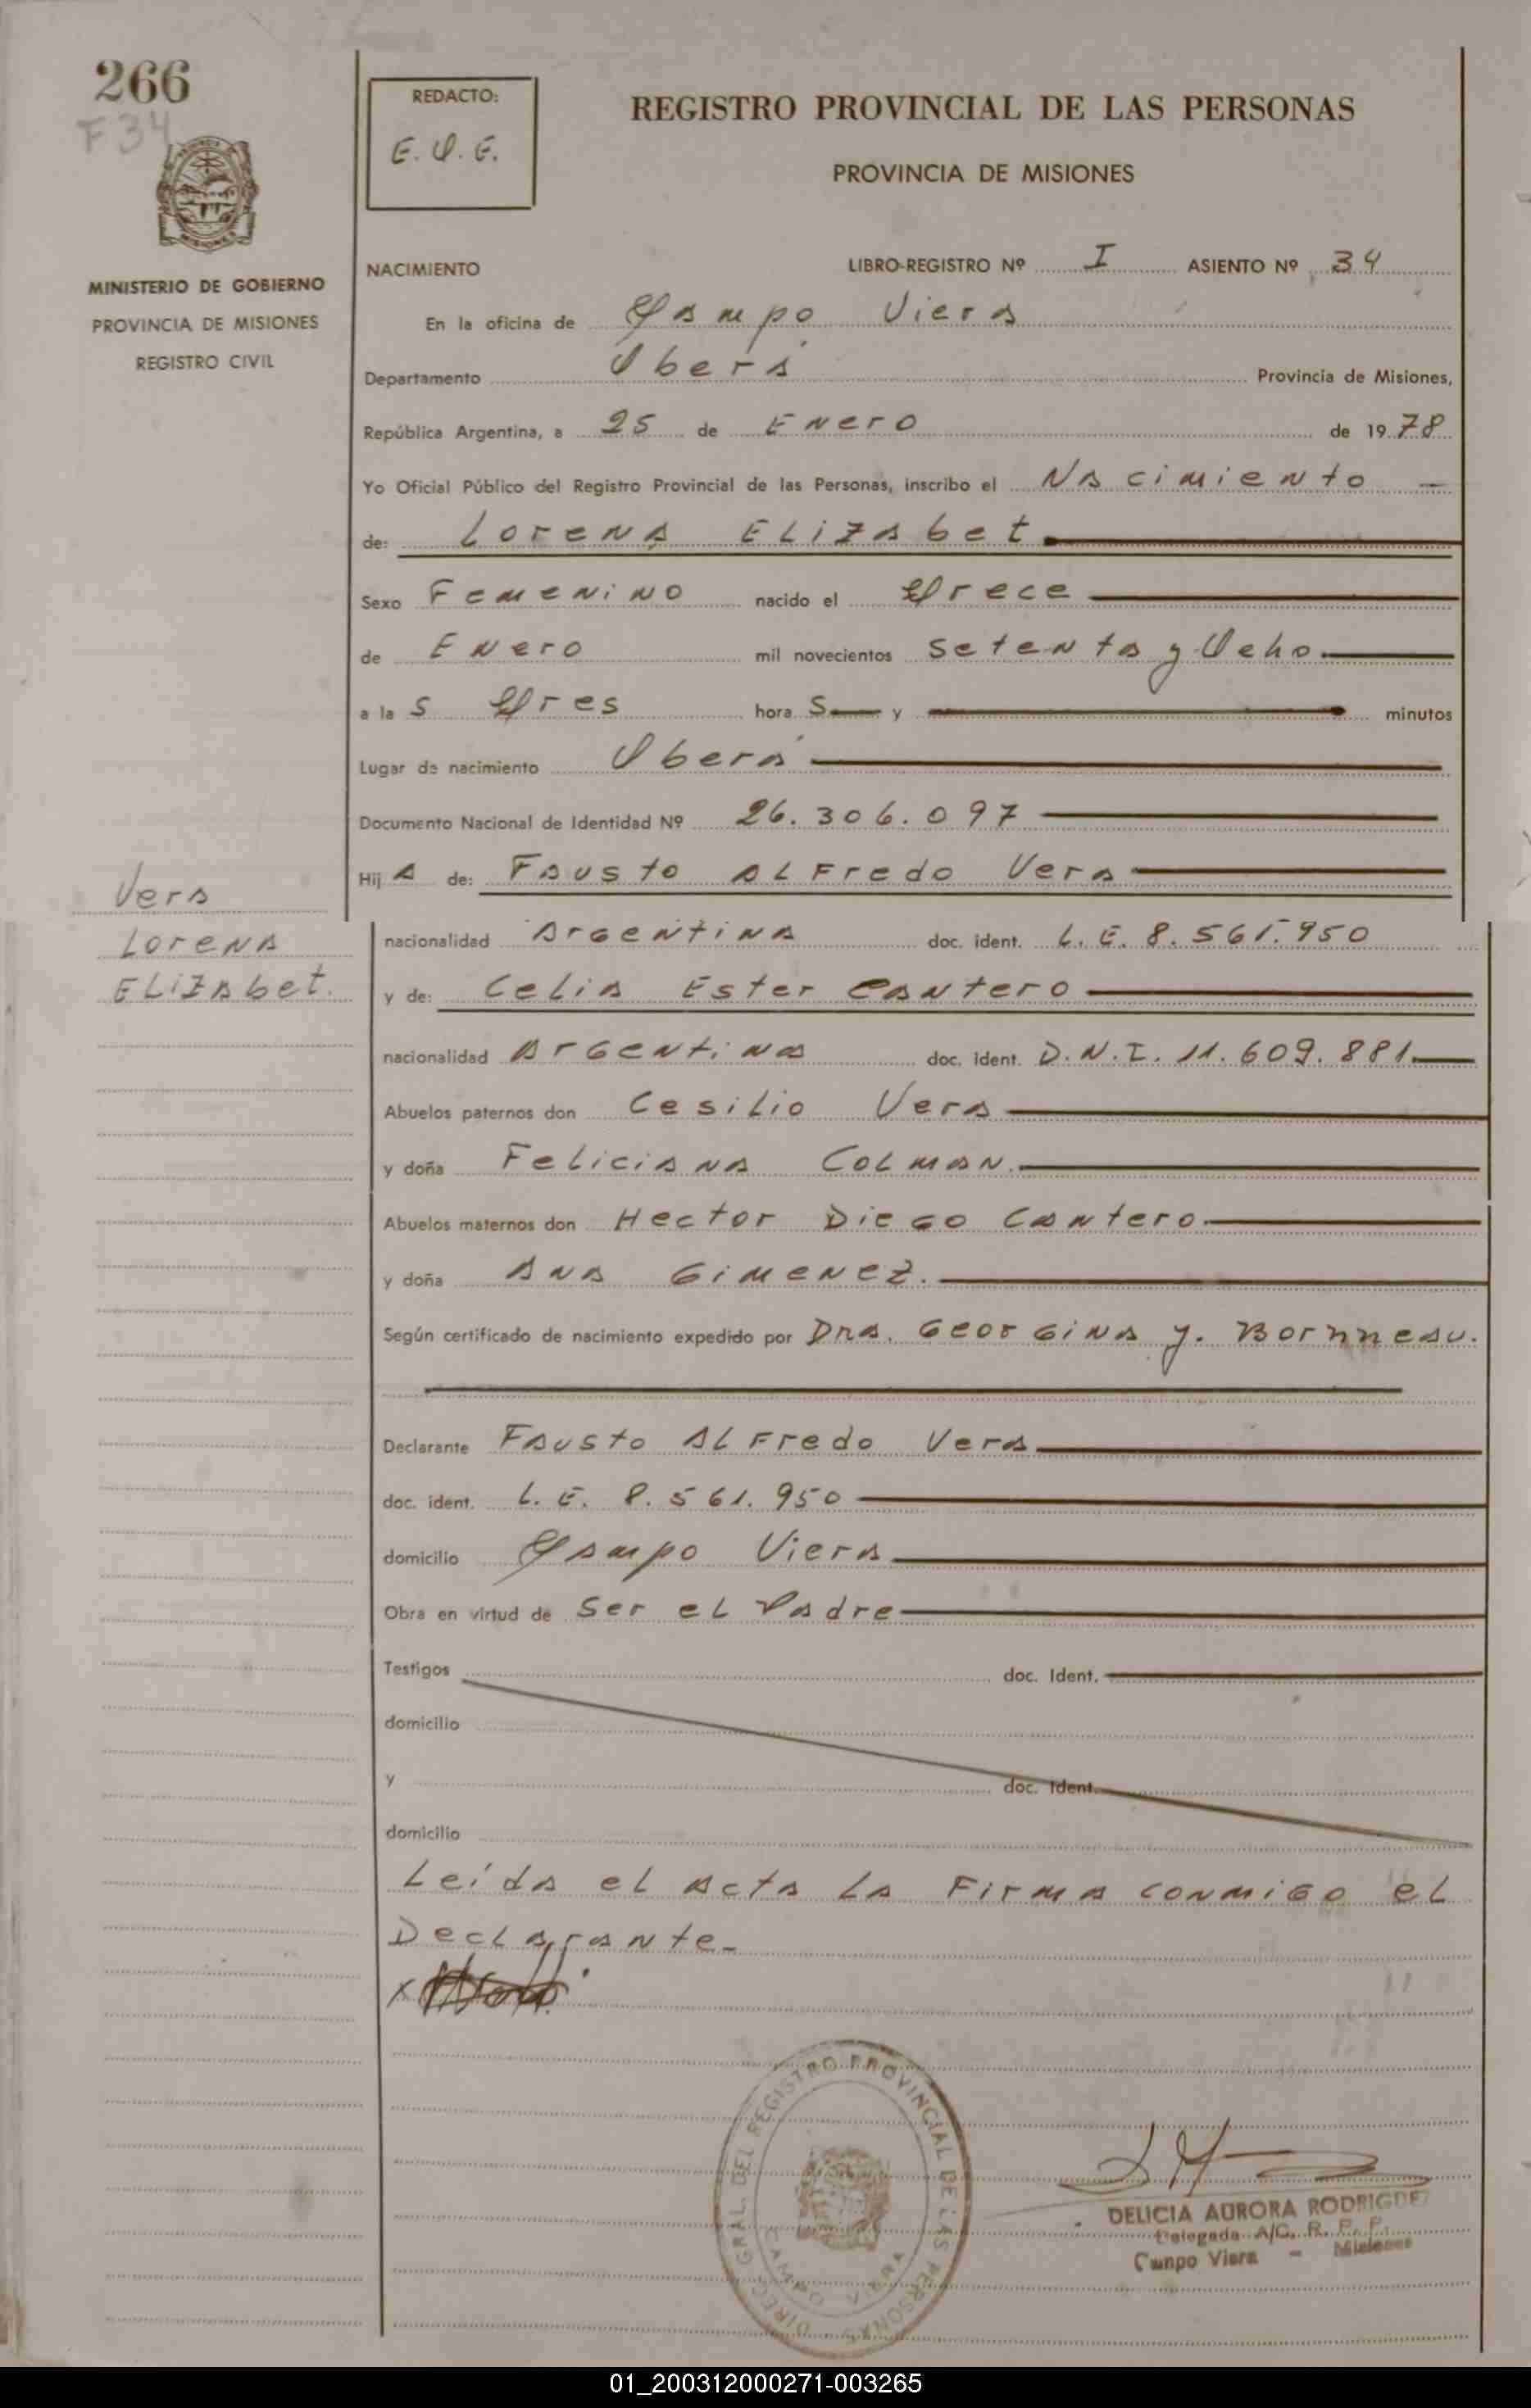 266
F34
REDACTO:
E.O.E.
REGISTRO PROVINCIAL DE LAS PERSONAS
PROVINCIA DE MISIONES
MINISTERIO DE GOBIERNO
PROVINCIA DE MISIONES
REGISTRO CIVIL
NACIMIENTO LIBRO-REGISTRO Nº I ASIENTO Nº 34
En la oficina de Campo Viera
Departamento Oberá Provincia de Misiones,
República Argentina, a 25 de Enero de 1978
Yo Oficial Público del Registro Provincial de las Personas, inscribo el Nacimiento
de: Lorena Elizabet
Sexo Femenino nacido el Trece
de Enero mil novecientos setenta y Ocho
a las Tres horas y minutos
Lugar de nacimiento Oberá
Documento Nacional de Identidad Nº 26.306.097
Hija de: Fausto Alfredo Vera
Vera
Lorena
Elizabet.
nacionalidad Argentina doc. ident. L.E. 8.561.950
y de: Celia Ester Cantero
nacionalidad Argentina doc. ident. D.N.I. 11.609.881
Abuelos paternos don Cesilio Vera
y doña Feliciana Colman.
Abuelos maternos don Hector Diego Cantero
y doña Ana Gimenez.
Según certificado de nacimiento expedido por Dra. Georgina y.
Declarante Fausto Alfredo Vera
doc. ident. L.E. 8.561.950
domicilio Campo Viera
Obra en virtud de Ser el Padre
Testigos doc. Ident.
domicilio
y doc. Ident.
domicilio
Leída el acta la Firma conmigo el
Declarante-
x
DIREC. GRAL. DEL REGISTRO PROVINCIAL DE LAS PERSONAS
CAMPO VIERA
DELICIA AURORA RODRIGUEZ
Delegada A/C. R. P. P.
Campo Viera - Misiones
01_200312000271-003265